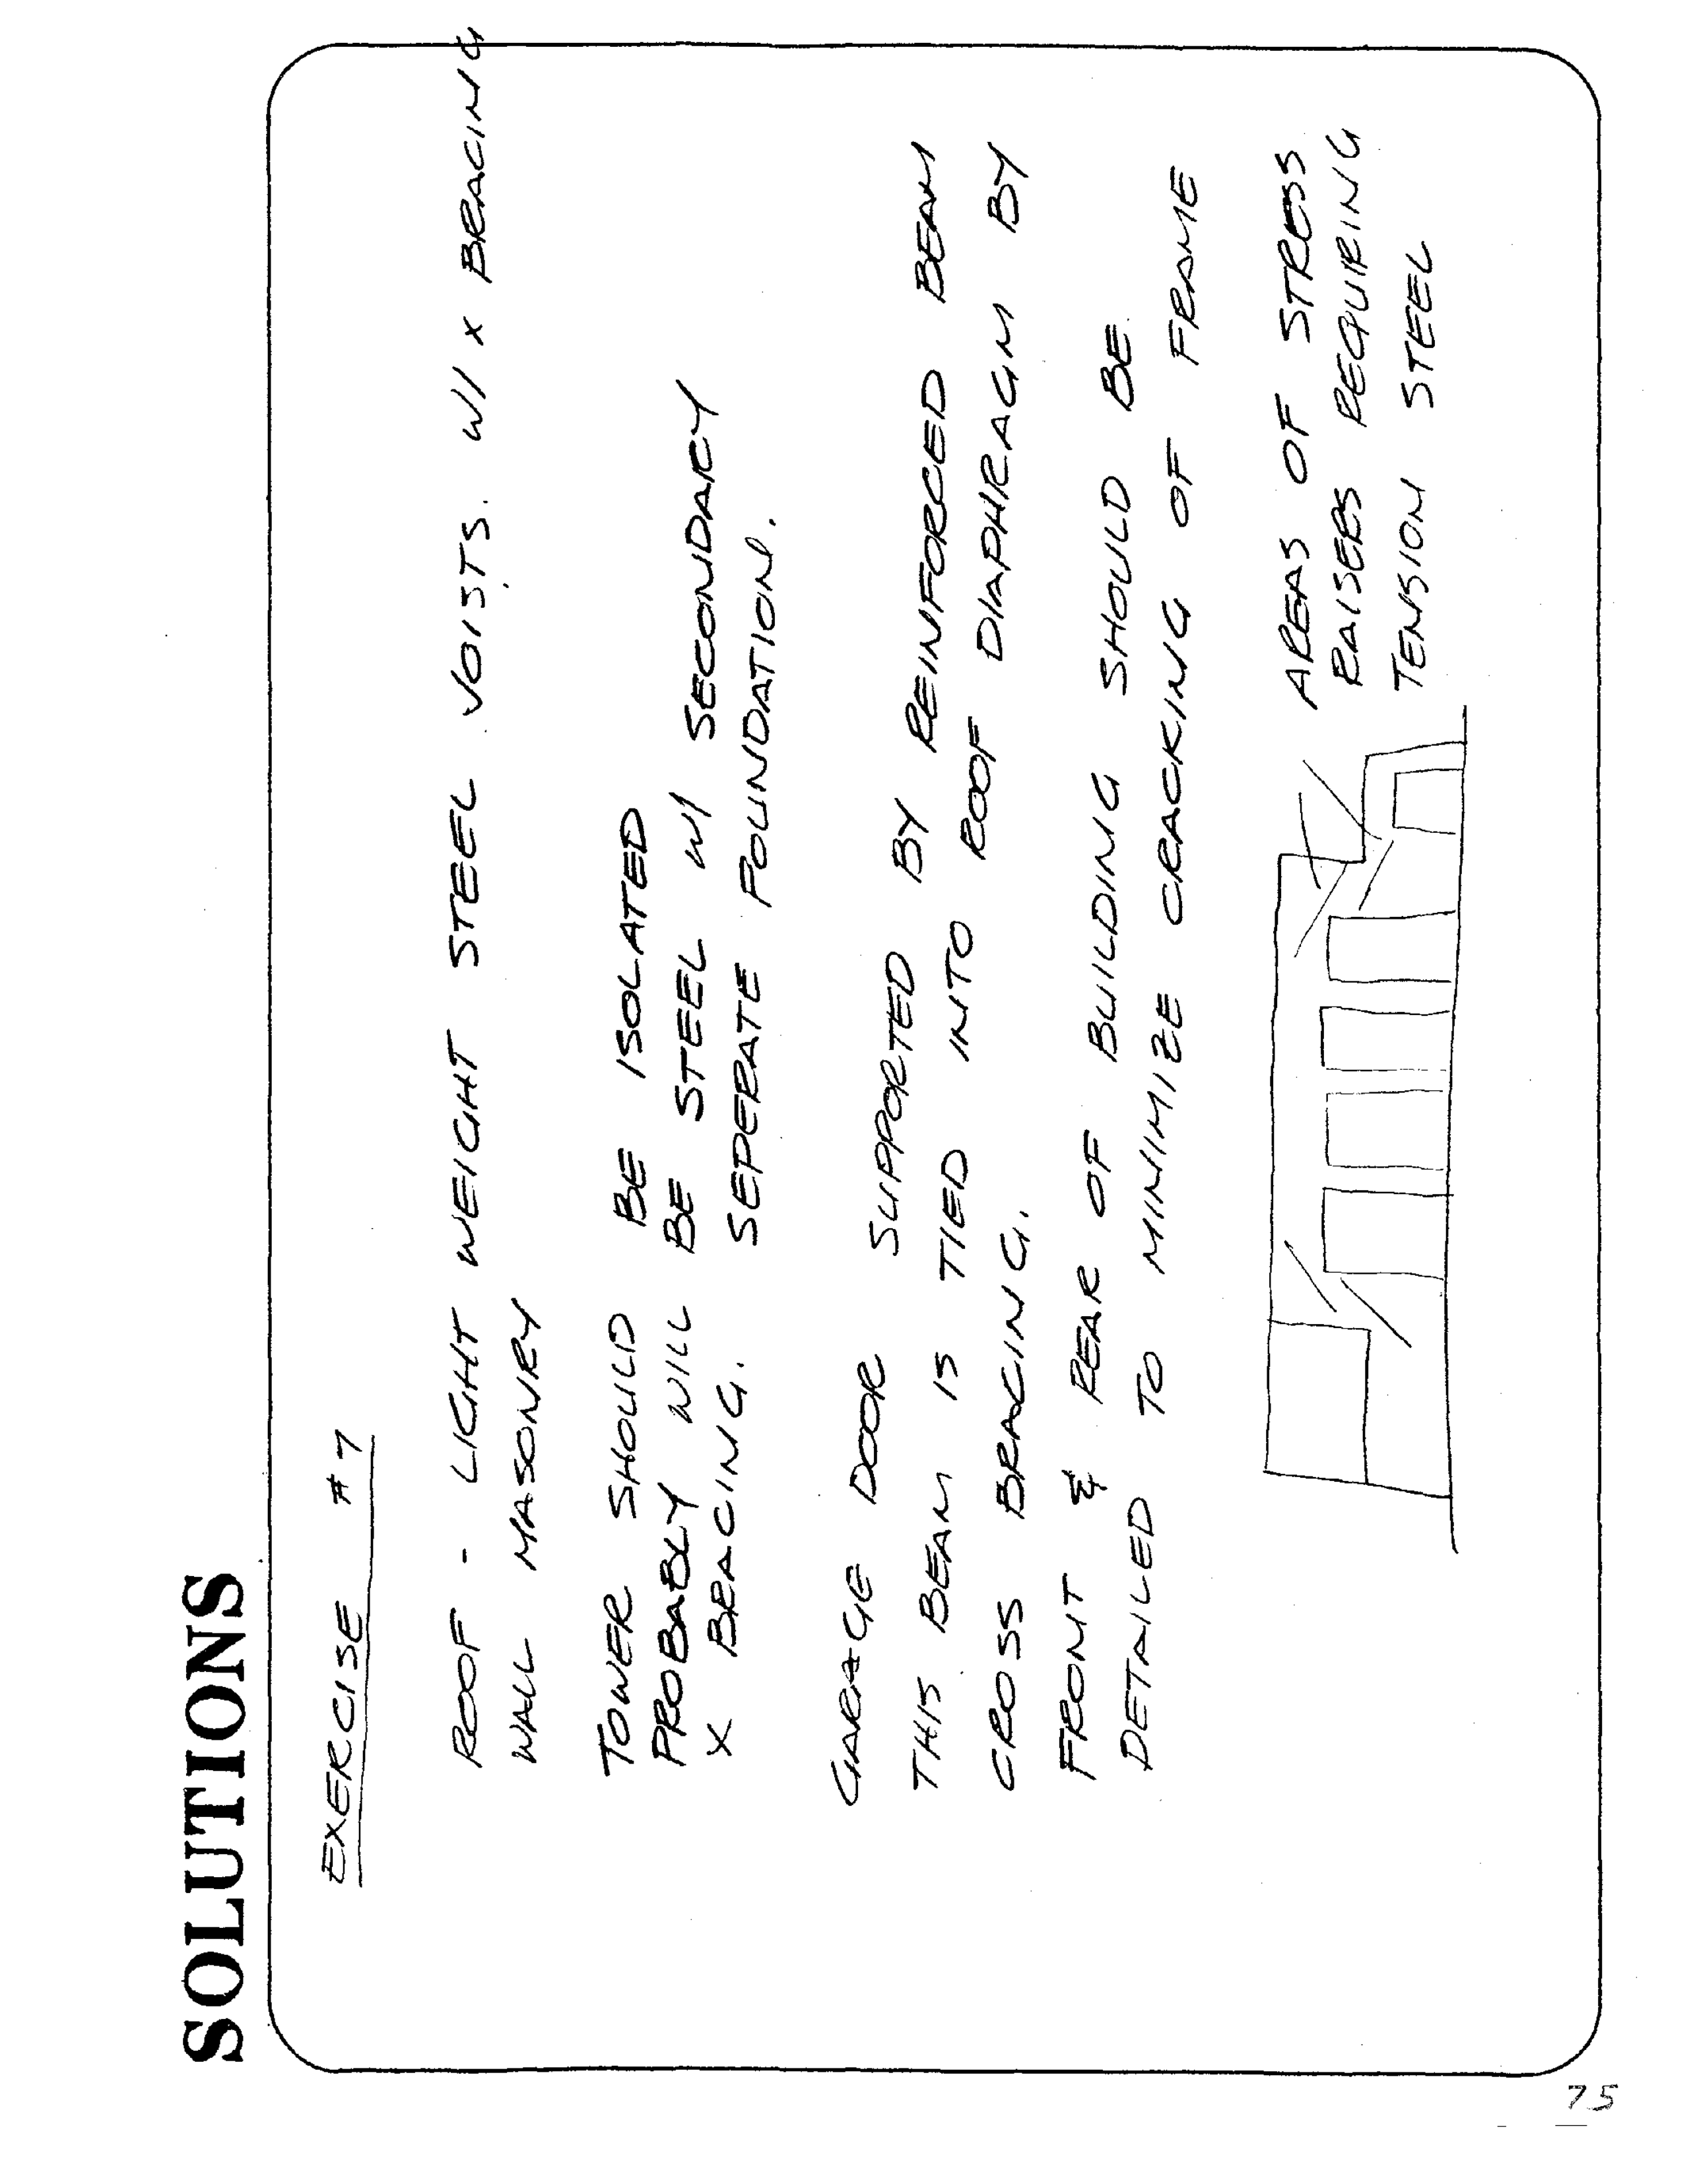 SOLUTIONS
EXERCISE #7
ROOF - LIGHT WEIGHT STEEL JOISTS. W/ X BRACING
WALL MASONRY
TOWER SHOULD BE ISOLATED
PROBABLY WILL BE STEEL W/ SECONDARY
X BRACING. SEPERATE FOUNDATION.
GARAGE DOOR SUPPORTED BY REINFORCED BEAM
THIS BEAM IS TIED INTO ROOF DIAPHRAGM BY
CROSS BRACING.
FRONT & REAR OF BUILDING SHOULD BE
DETAILED TO MINIMIZE CRACKING OF FRAME
AREAS OF STRESS
RAISERS REQUIRING
TENSION STEEL
75